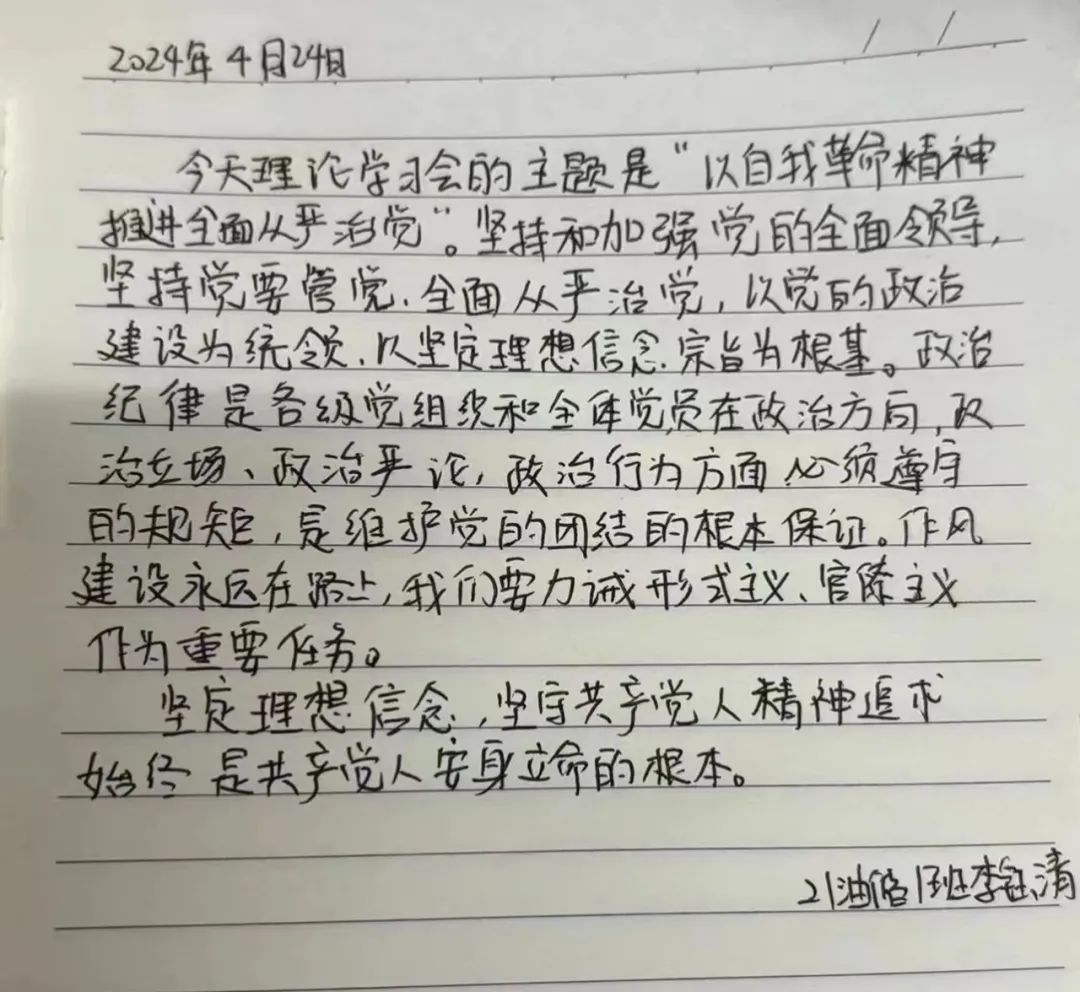 2024年4月24日
今天理论学习会的主题是“以自我革命精神
推进全面从严治党”。坚持和加强党的全面领导,
坚持党要管党、全面从严治党,以党的政治
建设为统领、以坚定理想信念、宗旨为根基。政治
纪律是各级党组织和全体党员在政治方向、政
治立场、政治严论,政治行为方面必须遵守
的规矩,是维护党的团结的根本保证。作风
建设永远在路上,我们要力诫形式主义、官僚主义
作为重要任务。
坚定理想信念,坚守共产党人精神追求
始终是共产党人安身立命的根本。
21油储1班李钰清